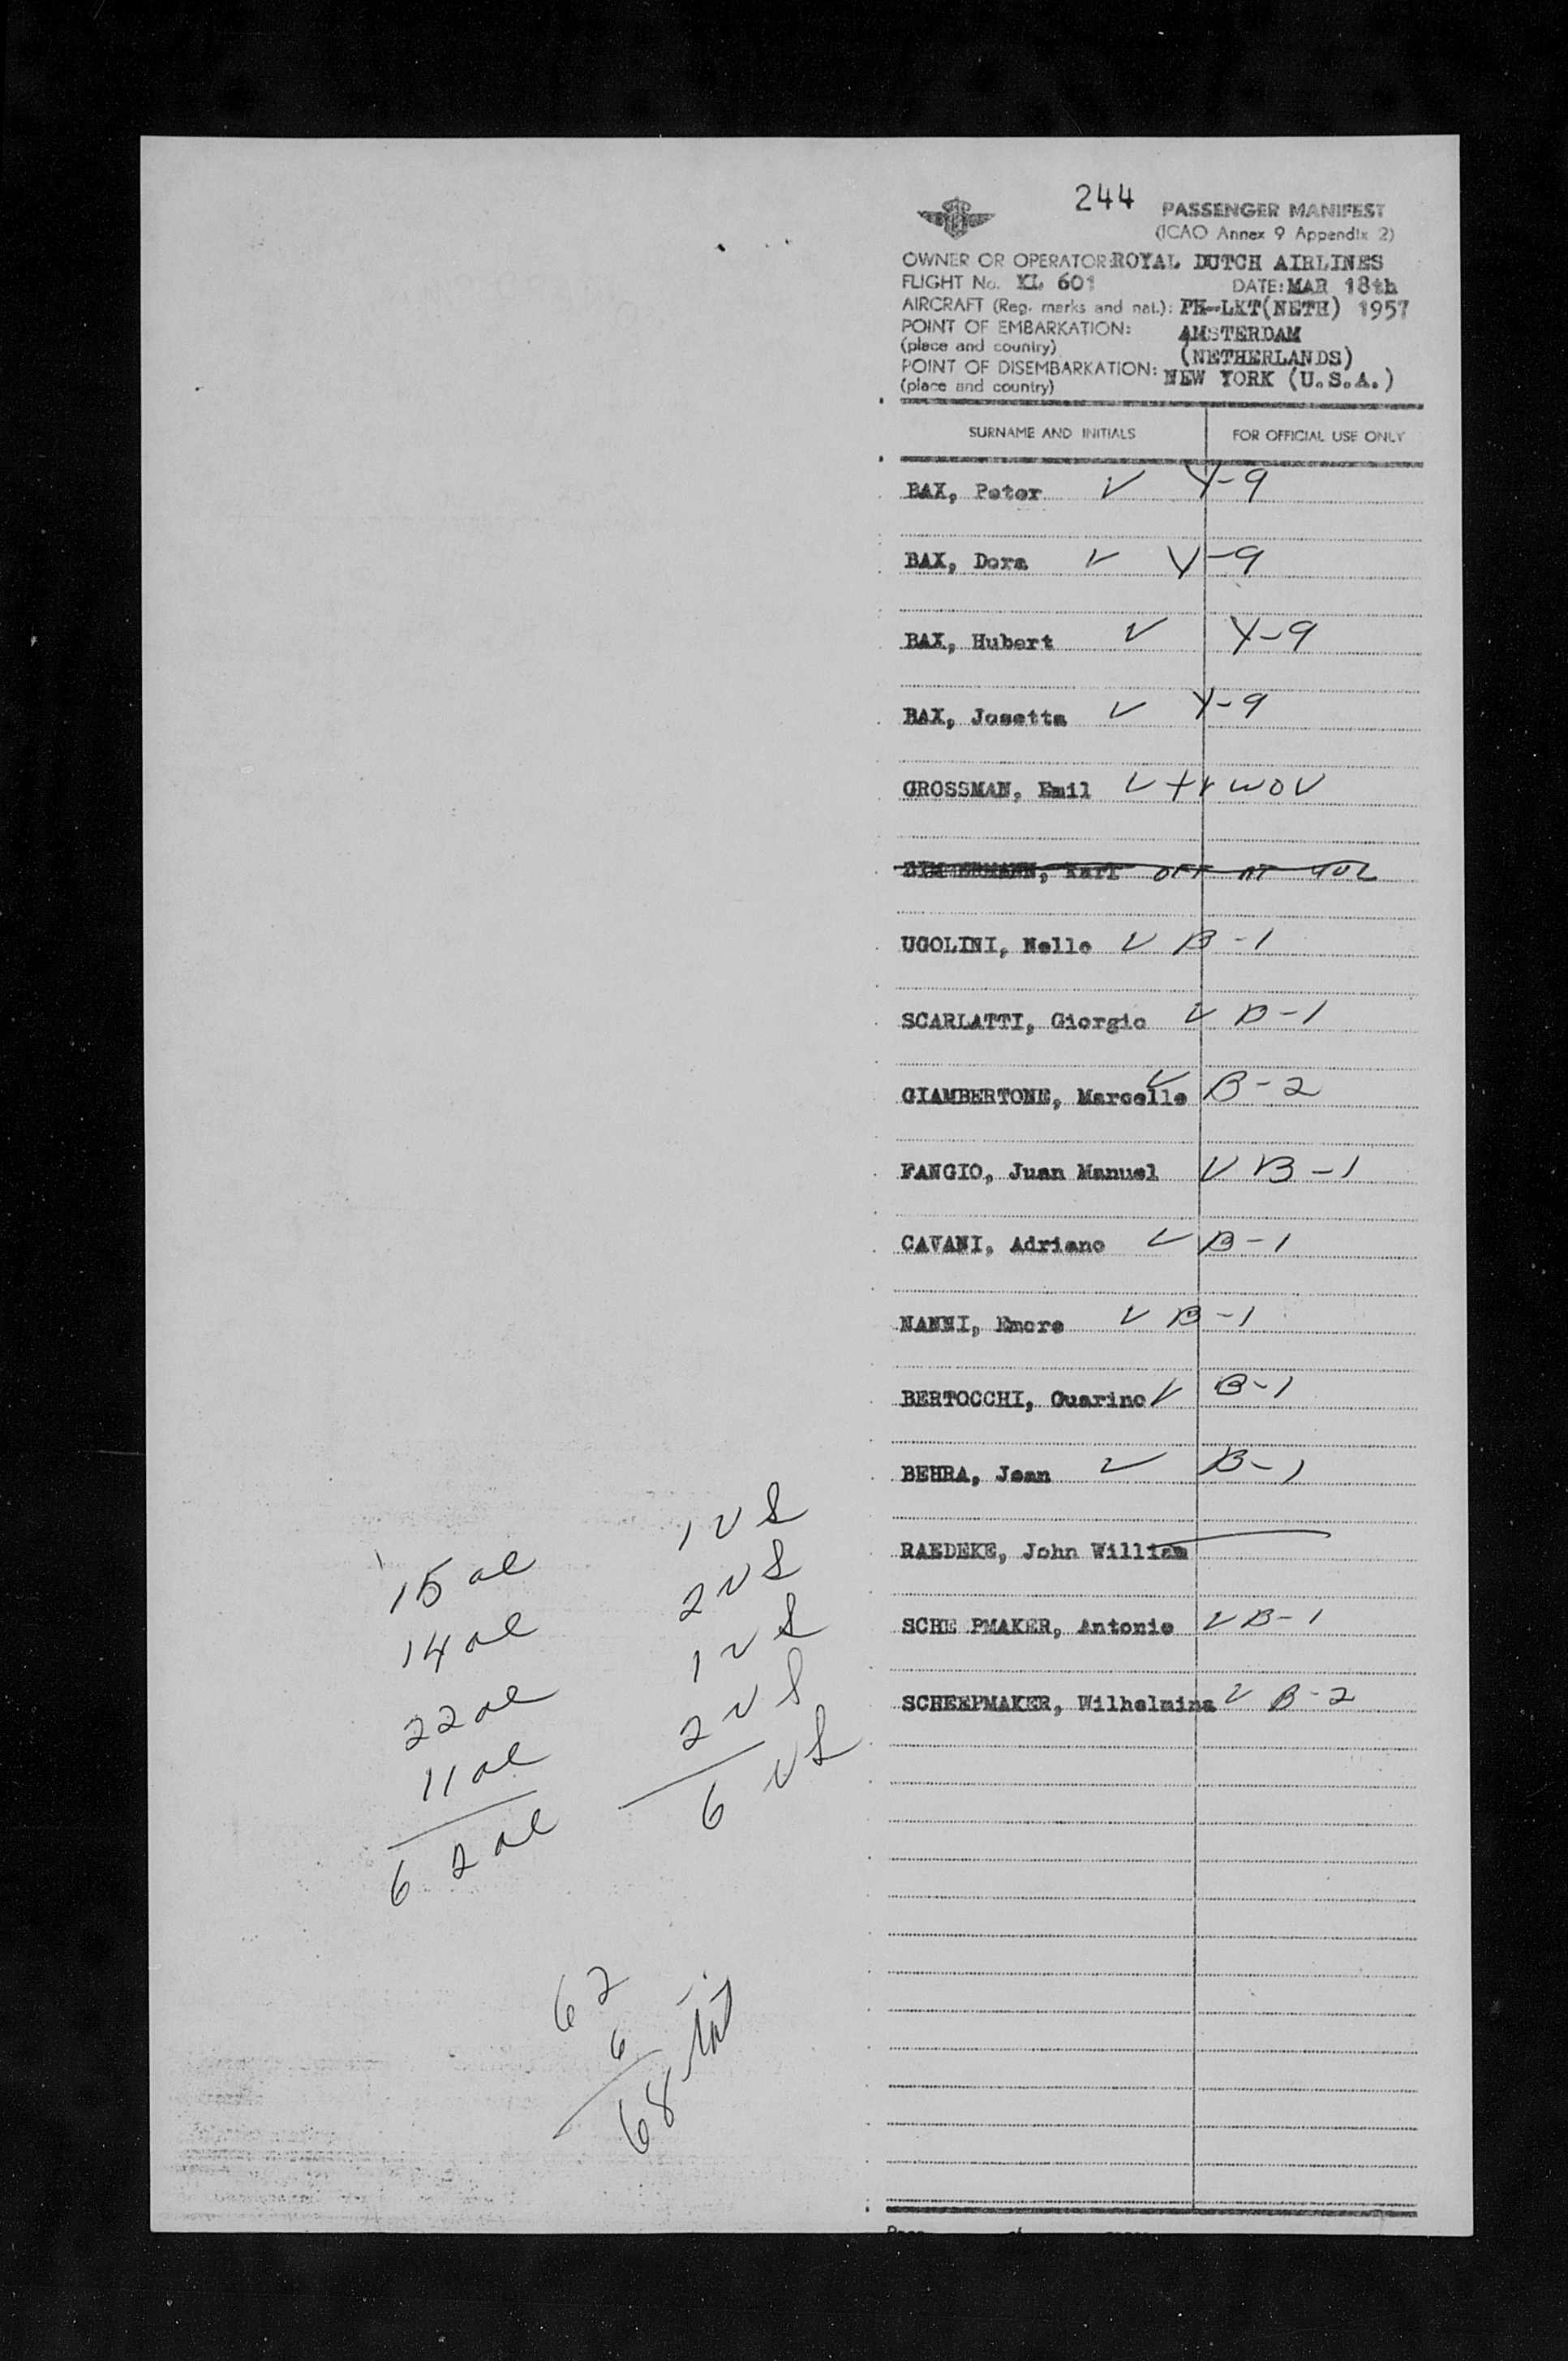 244
PASSENGER MANIFEST
(ICAO Annex 9 Appendix 2)
OWNER OR OPERATOR: ROYAL DUTCH AIRLINES
FLIGHT No. KL 601 DATE: MAR 18th
AIRCRAFT (Reg. marks and nat.): PH-LKT(NETH) 1957
POINT OF EMBARKATION: AMSTERDAM
(place and country) (NETHERLANDS)
POINT OF DISEMBARKATION: NEW YORK (U.S.A.)
(place and country)
SURNAME AND INITIALS FOR OFFICIAL USE ONLY
BAX, Peter ✓ Y-9
BAX, Dora ✓ Y-9
BAX, Hubert ✓ Y-9
BAX, Josetta ✓ Y-9
GROSSMAN, Emil ✓ WOV
ZIMMERMANN, Karl OFF AT
UGOLINI, Nello ✓ B-1
SCARLATTI, Giorgio ✓ B-1
GIAMBERTONE, Marcello ✓ B-2
FANGIO, Juan Manuel ✓ B-1
CAVANI, Adriano ✓ B-1
NANNI, Emore ✓ B-1
BERTOCCHI, Guarino ✓ B-1
BEHRA, Jean ✓ B-1
RAEDEKE, John William
SCHE PMAKER, Antonie ✓ B-1
SCHEEPMAKER, Wilhelmina ✓ B-2
15 al
14 al
22 al
11 al
62 al
1 US
2 US
1 US
2 US
6 US
62
6
68